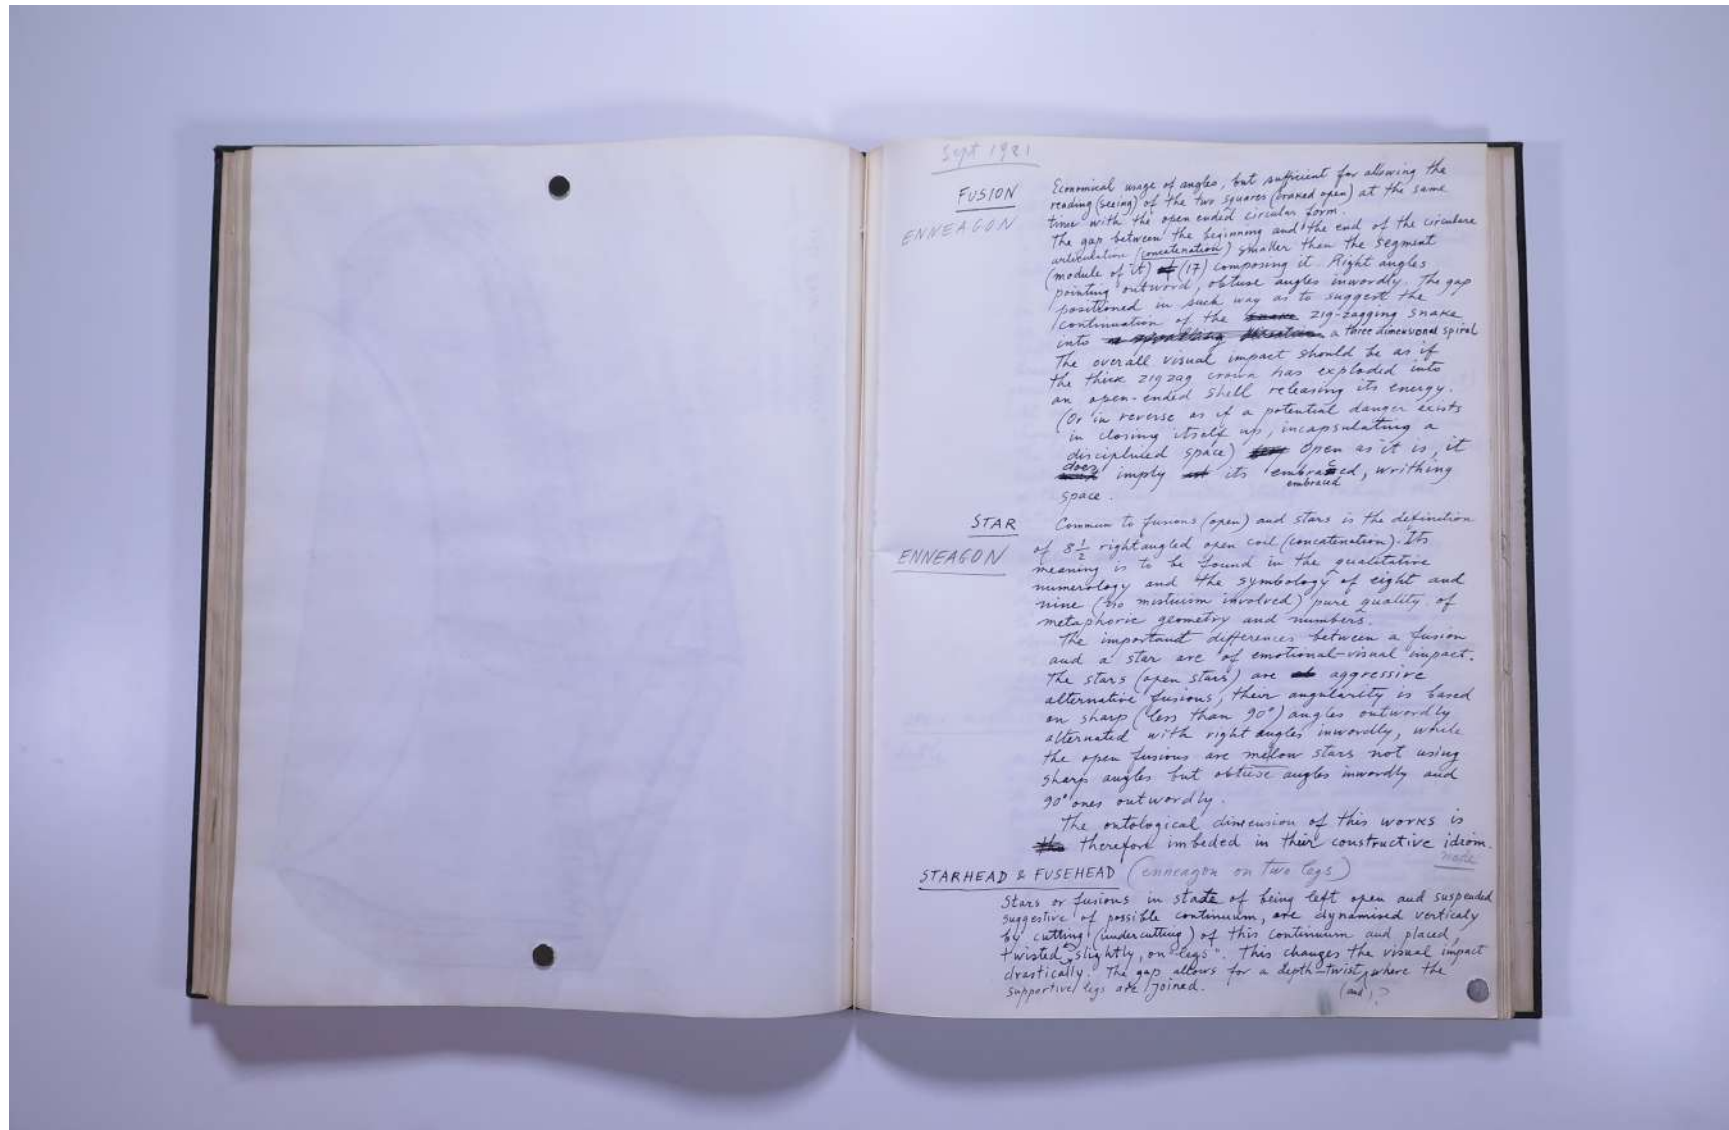 Sept 1981
FUSION
ENNEAGON
Economical usage of angles, but sufficient for allowing the
reading (seeing) of the two squares (braked open) at the same
time with the open ended circular form.
The gap between the beginning and the end of the circulare
articulation (concatenation) smaller then the segment
(module of it) (17) composing it. Right angles
pointing outword, obtuse angles inwordly. The gap
positioned in such way as to suggest the
continuation of the zig-zagging snake
into a three dimensional spiral
The overall visual impact should be as if
the thick zig zag crown has exploded into
an open-ended shell releasing its energy.
(Or in reverse as if a potential danger exists
in closing itself up, incapsulating a
disciplined space) Open as it is, it
does imply its embraced, writhing
embraced
space.
STAR
ENNEAGON
Commun to fusions (open) and stars is the definition
of 8 1/2 right angled open coil (concatenation). Its
meaning is to be found in the qualitative
numerology and the symbology of eight and
nine (no misticism involved) pure quality of
metaphoric geometry and numbers.
The important differences between a fusion
and a star are of emotional-visual impact.
The stars (open stars) are aggressive
alternative fusions, their angularity is based
on sharp (less than 90°) angles outwordly
alternated with right angles inwordly, while
the open fusions are melow stars not using
sharp angles but obtuse angles inwordly and
90° ones outwordly.
The ontological dimension of this works is
therefore imbeded in their constructive idiom.
node
STARHEAD & FUSEHEAD (enneagon on two legs)
Stars or fusions in state of being left open and suspended
suggestive of possible continuum, are dynamised verticaly
by cutting (undercutting) of this continuum and placed,
twisted slightly, on "legs". This changes the visual impact
drastically. The gap allows for a depth-twist, where the
supportive legs are joined.
(and)?